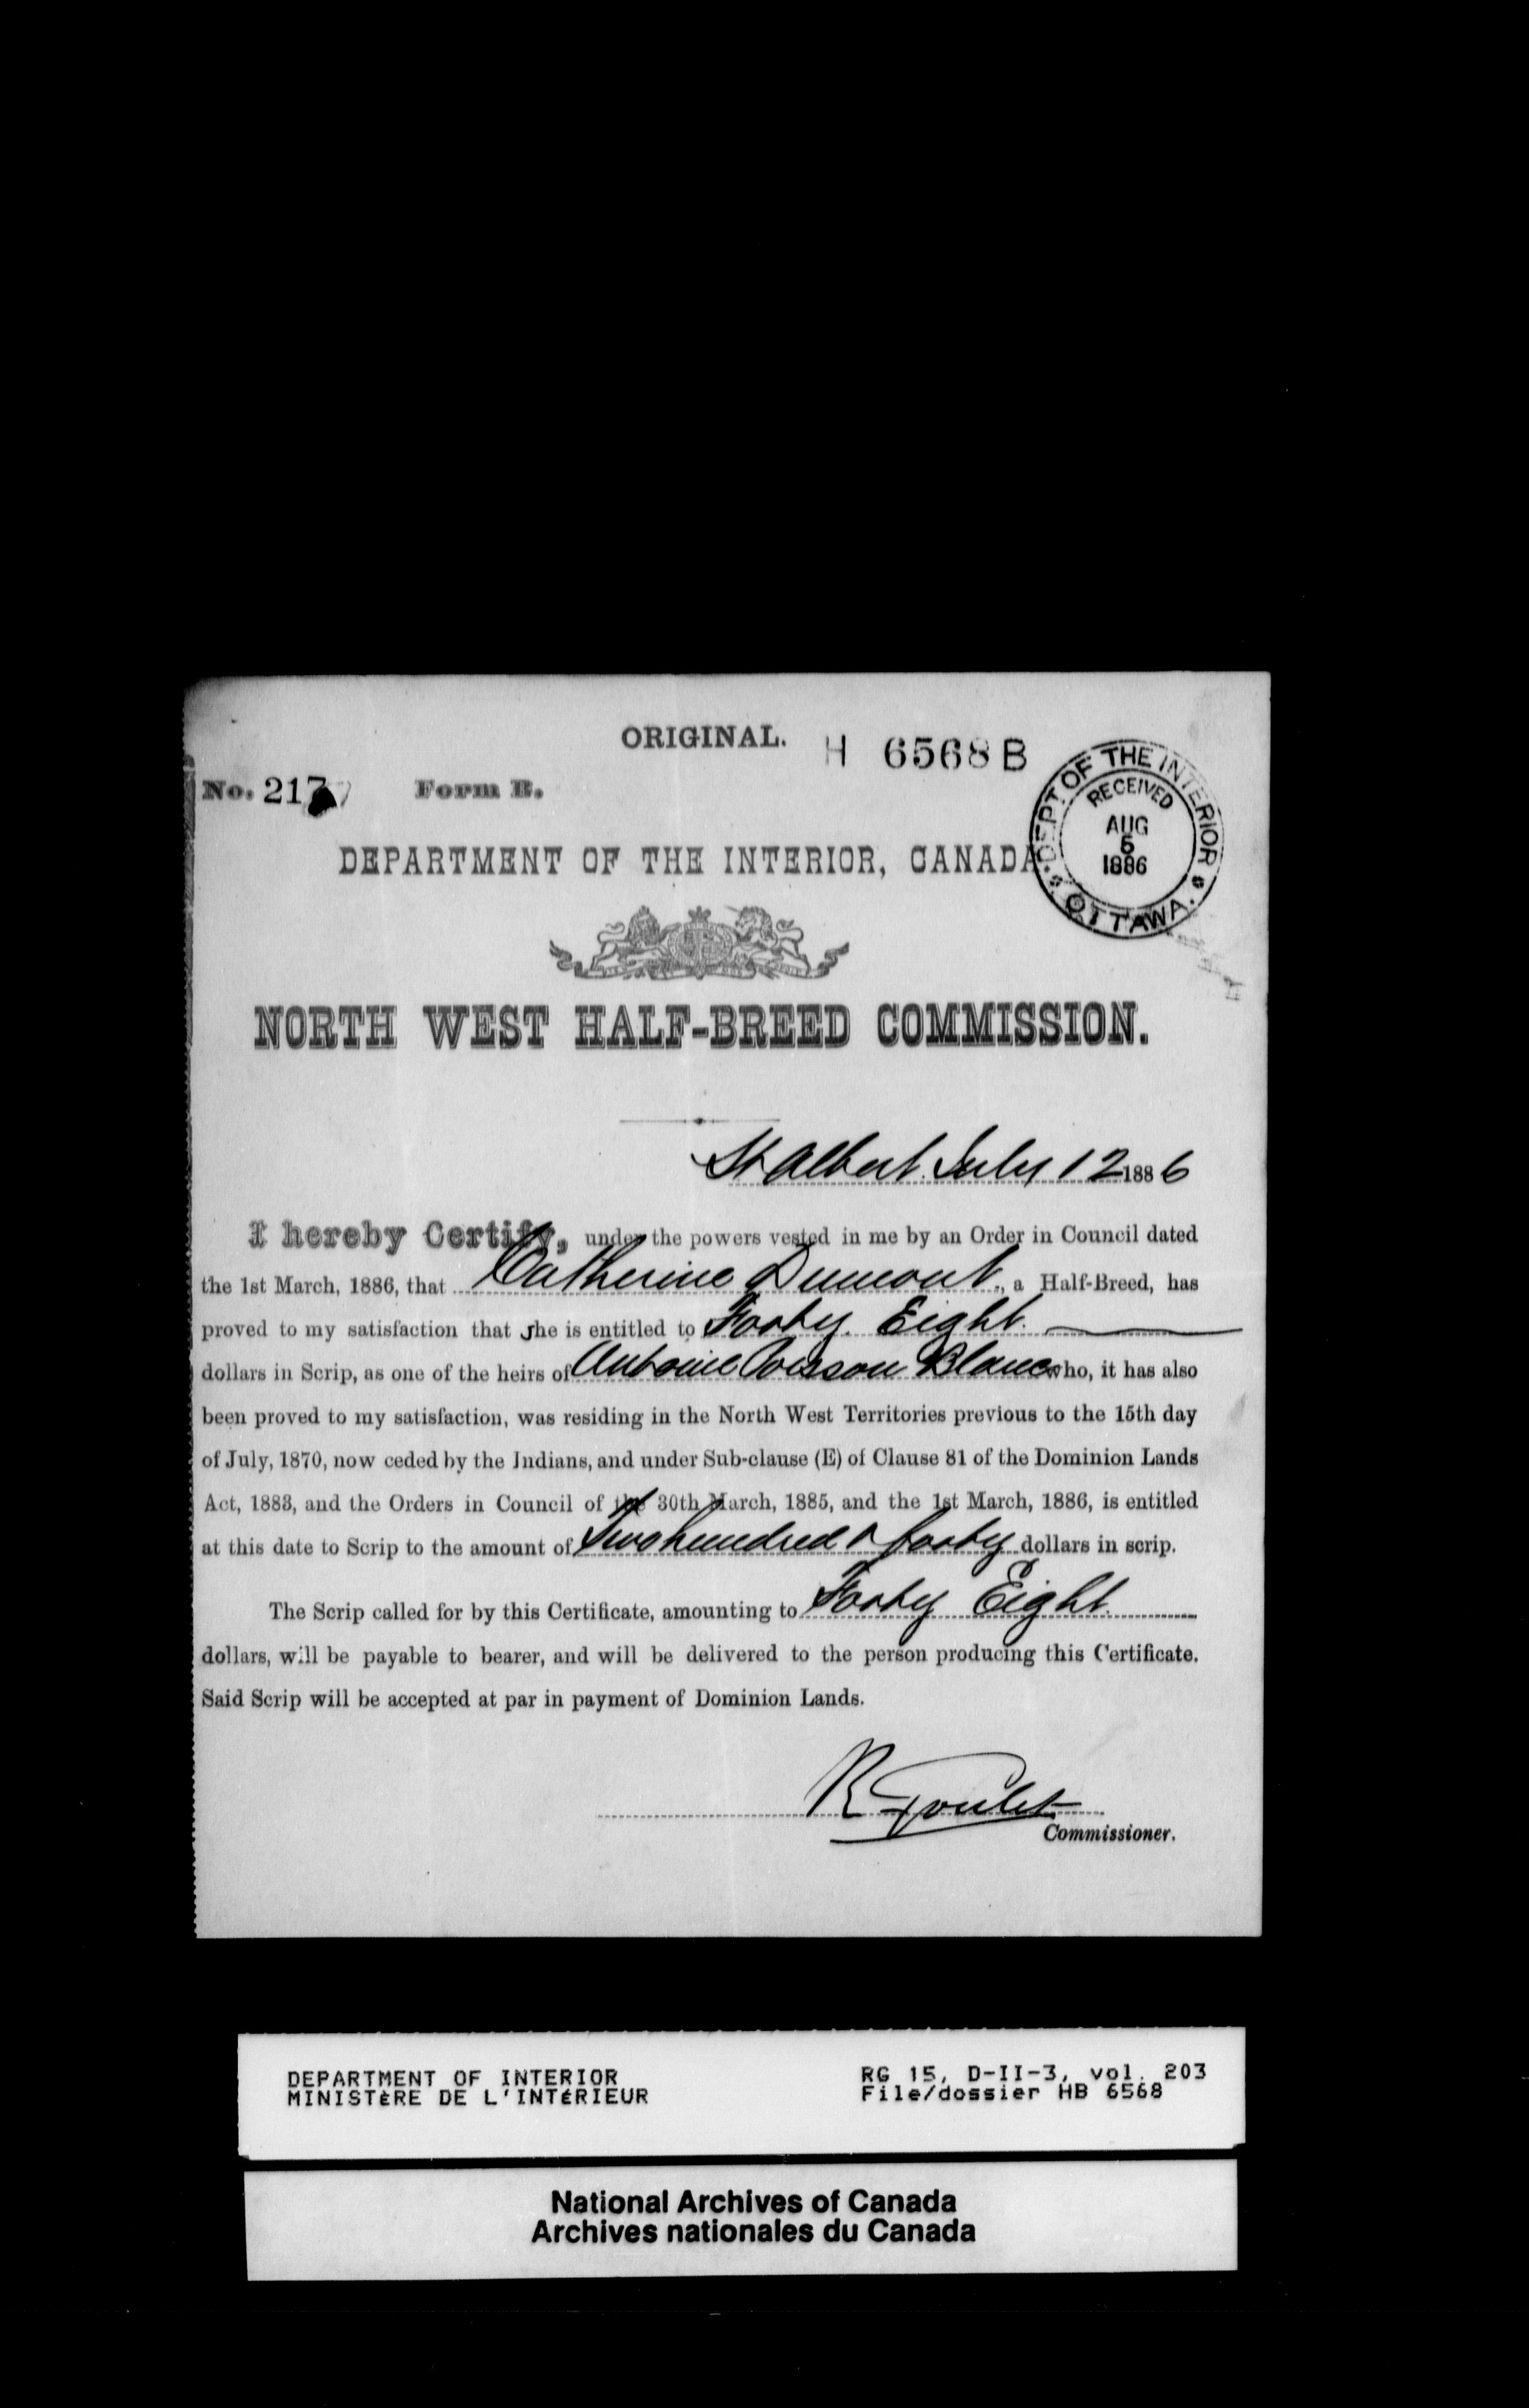 ORIGINAL. H 6568 B
No. 217 Form B.
DEPT OF THE INTERIOR
RECEIVED
AUG
5
1886
OTTAWA.
DEPARTMENT OF THE INTERIOR, CANADA
NORTH WEST HALF-BREED COMMISSION.
St Albert July 12 1886
I hereby Certify, under the powers vested in me by an Order in Council dated
the 1st March, 1886, that Catherine Dumont, a Half-Breed, has
proved to my satisfaction that she is entitled to Forty Eight
dollars in Scrip, as one of the heirs of Antoine Poisson Blanc who, it has also
been proved to my satisfaction, was residing in the North West Territories previous to the 15th day
of July, 1870, now ceded by the Indians, and under Sub-clause (E) of Clause 81 of the Dominion Lands
Act, 1883, and the Orders in Council of the 30th March, 1885, and the 1st March, 1886, is entitled
at this date to Scrip to the amount of Two hundred & forty dollars in scrip.
The Scrip called for by this Certificate, amounting to Forty Eight
dollars, will be payable to bearer, and will be delivered to the person producing this Certificate.
Said Scrip will be accepted at par in payment of Dominion Lands.
R Goulet
Commissioner.
DEPARTMENT OF INTERIOR RG 15, D-II-3, vol. 203
MINISTÈRE DE L'INTÉRIEUR File/dossier HB 6568
National Archives of Canada
Archives nationales du Canada